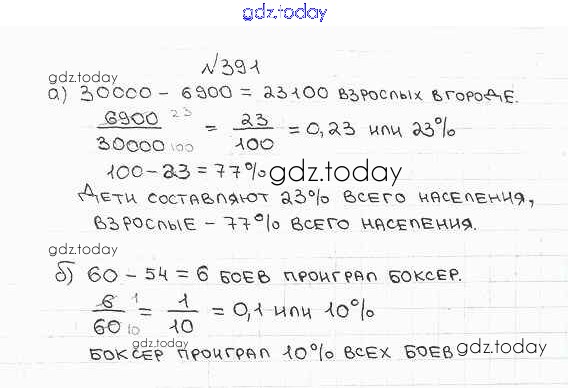 gdz.today
№391
gdz.today
а) 30000 - 6900 = 23100 взрослых в городе.
6900/30000 23/100 = 23/100 = 0,23 или 23%
100 - 23 = 77%
gdz.today
Дети составляют 23% всего населения,
взрослые - 77% всего населения.
gdz.today
б) 60 - 54 = 6 боев проиграл боксер.
6/60 1/10 = 1/10 = 0,1 или 10%
gdz.today
боксер проиграл 10% всех боев
gdz.today